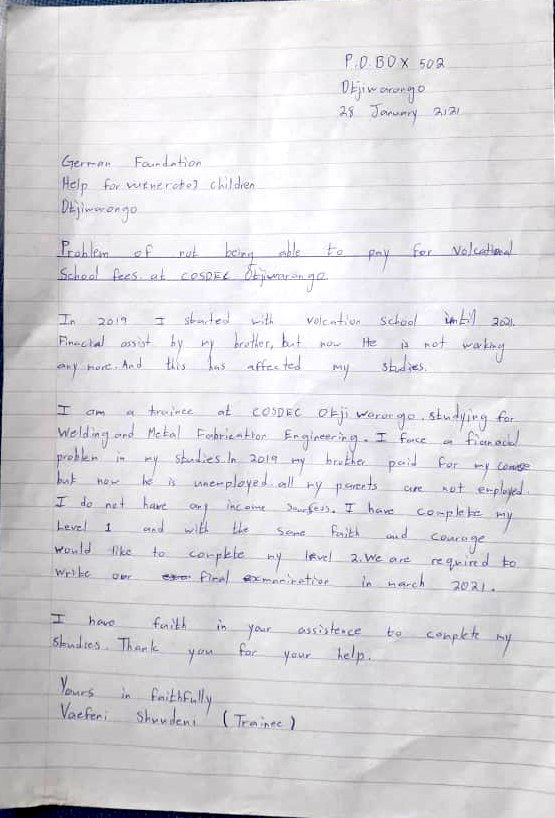 P.O.BOX 502
Otjiwarongo
28 January 2121
German Foundation
Help for children
Otjiwarongo
Problem of not being able to pay for Volcational
School fees. at COSDEC Otjiwarongo.
In 2019 I started with volcation school until 2021.
Finacial assist by my brother, but now He is not working
any more. And this has affected my studies.
I am a trainee at COSDEC Otjiwarongo. studying for
Welding and Metal Fabrication Engineering. I face a fianacial
problem in my studies. In 2019 my brother paid for my course
but now he is unemployed. all my parents are not employed.
I do not have any income. I have complete my
Level 1 and with the same faith and courage
would like to complete my level 2. We are required to
write our final in march 2021.
I have faith in your assistence to complete my
studies. Thank you for your help.
Yours in faithfully
Vaefeni Shuudeni (Trainee)